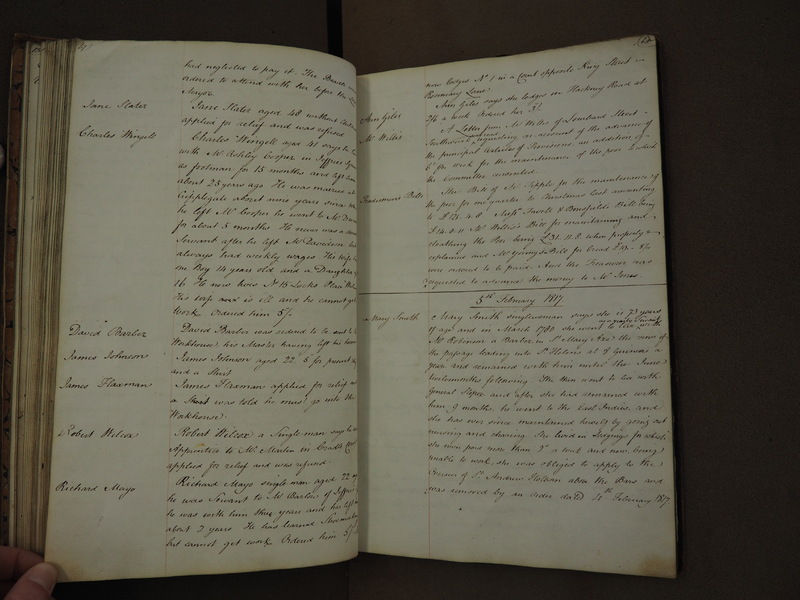 had neglected to pay it. The Beadle
ordered to attend with her before the
Mayor.
Jane Slater
Jane Slater aged 48 without
applied for relief and was refused
Charles Wingell
Charles Wingell aged 41 says he
with Mr Ashley Cooper in Jeffries
as footman for 15 months and left
about 23 years ago. He was married
Cripplegate about nine years since
he left Mr Cooper he went to Mr
for about 5 months. He never was a
Servant after he left Mr Davidson
always had weekly wages. His wife
one Boy 14 years old and a Daughter
16. He now lives No 15 Locks Place
His wife is ill and he cannot get
Work. Ordered him 5/-
David Barber
David Barber was ordered to be sent to
Workhouse, his Master having left his
James Johnson
James Johnson aged 22. 5 for present
and a Shirt
James Flaxman
James Flaxman applied for relief
a Shirt was told he must go into the
Workhouse.
Robert Wilcox
Robert Wilcox a Single man says he
Apprentice to Mr Marlin in Cradle Court
applied for relief and was refused
Richard Mays
Richard Mays single man aged 22
he was Servant to Mr Barlow of Jeffries
he was with him three years and has left
about 2 years. He has learned Shoemaking
but cannot get work. Ordered him 5/
now lodges No 1 in a Court opposite King Street in
Rosemary Lane.
Ann Giles
Ann Giles says she lodges in Hackney Road at
2/6 a week. Ordered her 5/.
Mr Willis
A Letter from Mr Willis of Lombard Street
Southwark requesting on account of the advance of
the principal Articles of Provisions an addition of
6d per week for the maintenance of the poor to which
the Committee consented.
Tradesmens Bills
The Bill of Mr Tipple for the maintenance of
the poor for one quarter to Christmas last amounting
to £128.4.8. Messrs Towell & Bousfields Bill being
£14.8.11 Mr Willis's Bill for maintaining and
cloathing the Poor being £31.11.8. when properly
explained and Mr Youngs Bill for bread
were ordered to be paid. And the Treasurer was
requested to advance the money to Mr Jones.
5th February 1817.
Mary Smith
Mary Smith singlewoman says she is 73 years
of age and in March 1780 she went to live with
as yearly Servant
Mr Robinson a Barber in St Mary Axe the corner of
the passage leading into St Helens at 6 Guineas a
year and remained with him until the June
twelvemonths following. She then went to live with
General Sloper and after she had remained with
him 9 months he went to the East Indies and
she has ever since maintained herself by going out
nursing and chairing. She lived in Lodgings for which
she never gave more than 2/ a week and now being
unable to work, she was obliged to apply to the
Parish of St Andrew Holborn above the Bars and
was removed by an order dated 4th February 1817